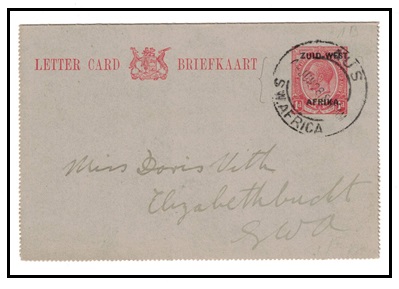 LETTER CARD BRIEFKAART
ZUID-WEST
AFRIKA
AUS
S.W. AFRICA
Miss Doris Vith
Elizabethbucht
SWA